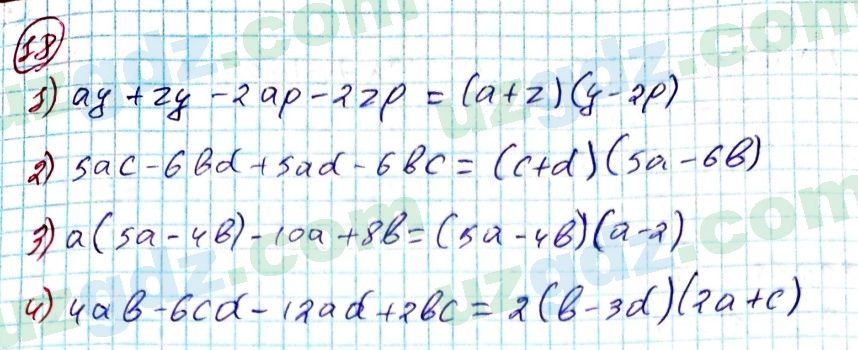 18
1) ay + zy - 2ap - 2zp = (a+z)(y-2p)
2) 5ac - 6bd + 5ad - 6bc = (c+d)(5a-6b)
3) a(5a-4b) - 10a + 8b = (5a-4b)(a-2)
4) 4ab - 6cd - 12ad + 2bc = 2(b-3d)(2a+c)
uzgdz.com